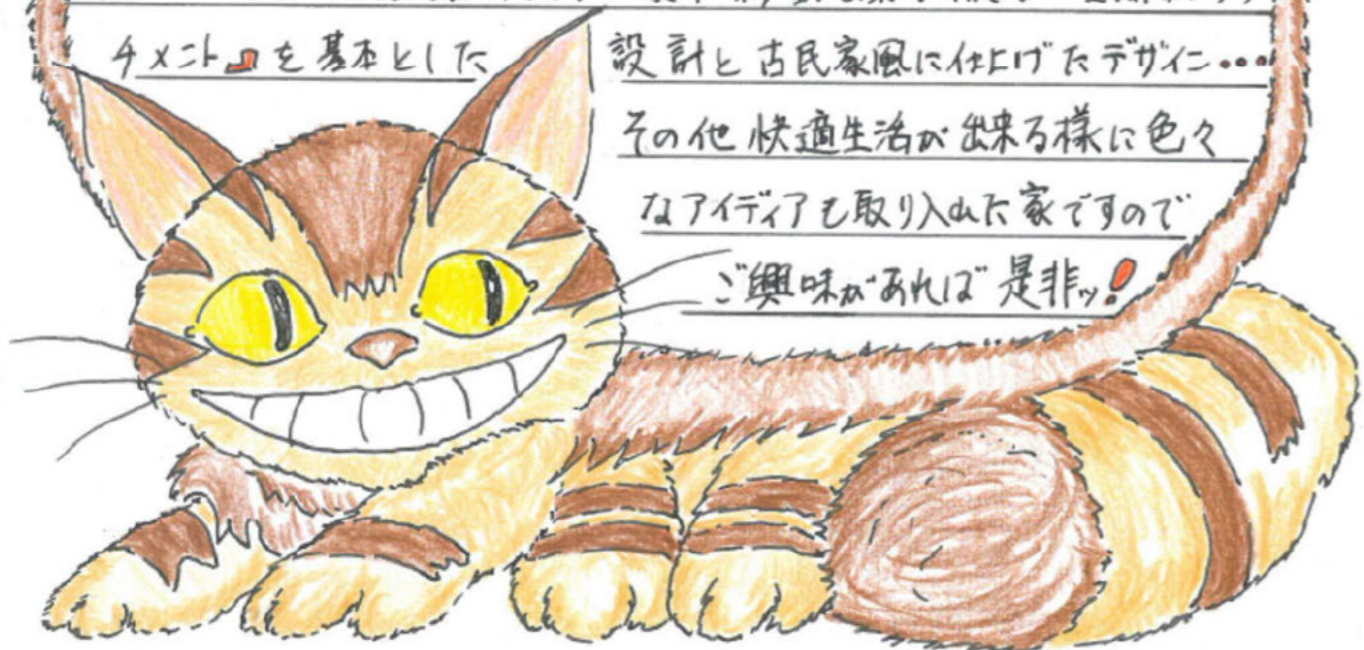 チメント』を基本とした 設計と古民家風に仕上げたデザイン・・・・
その他快適生活が出来る様に色々
なアイディアも取り入れた家ですので
ご興味があれば是非ッ!